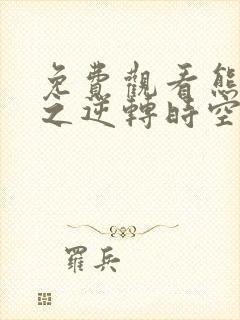 免費觀看熊
之逆轉時空
羅兵